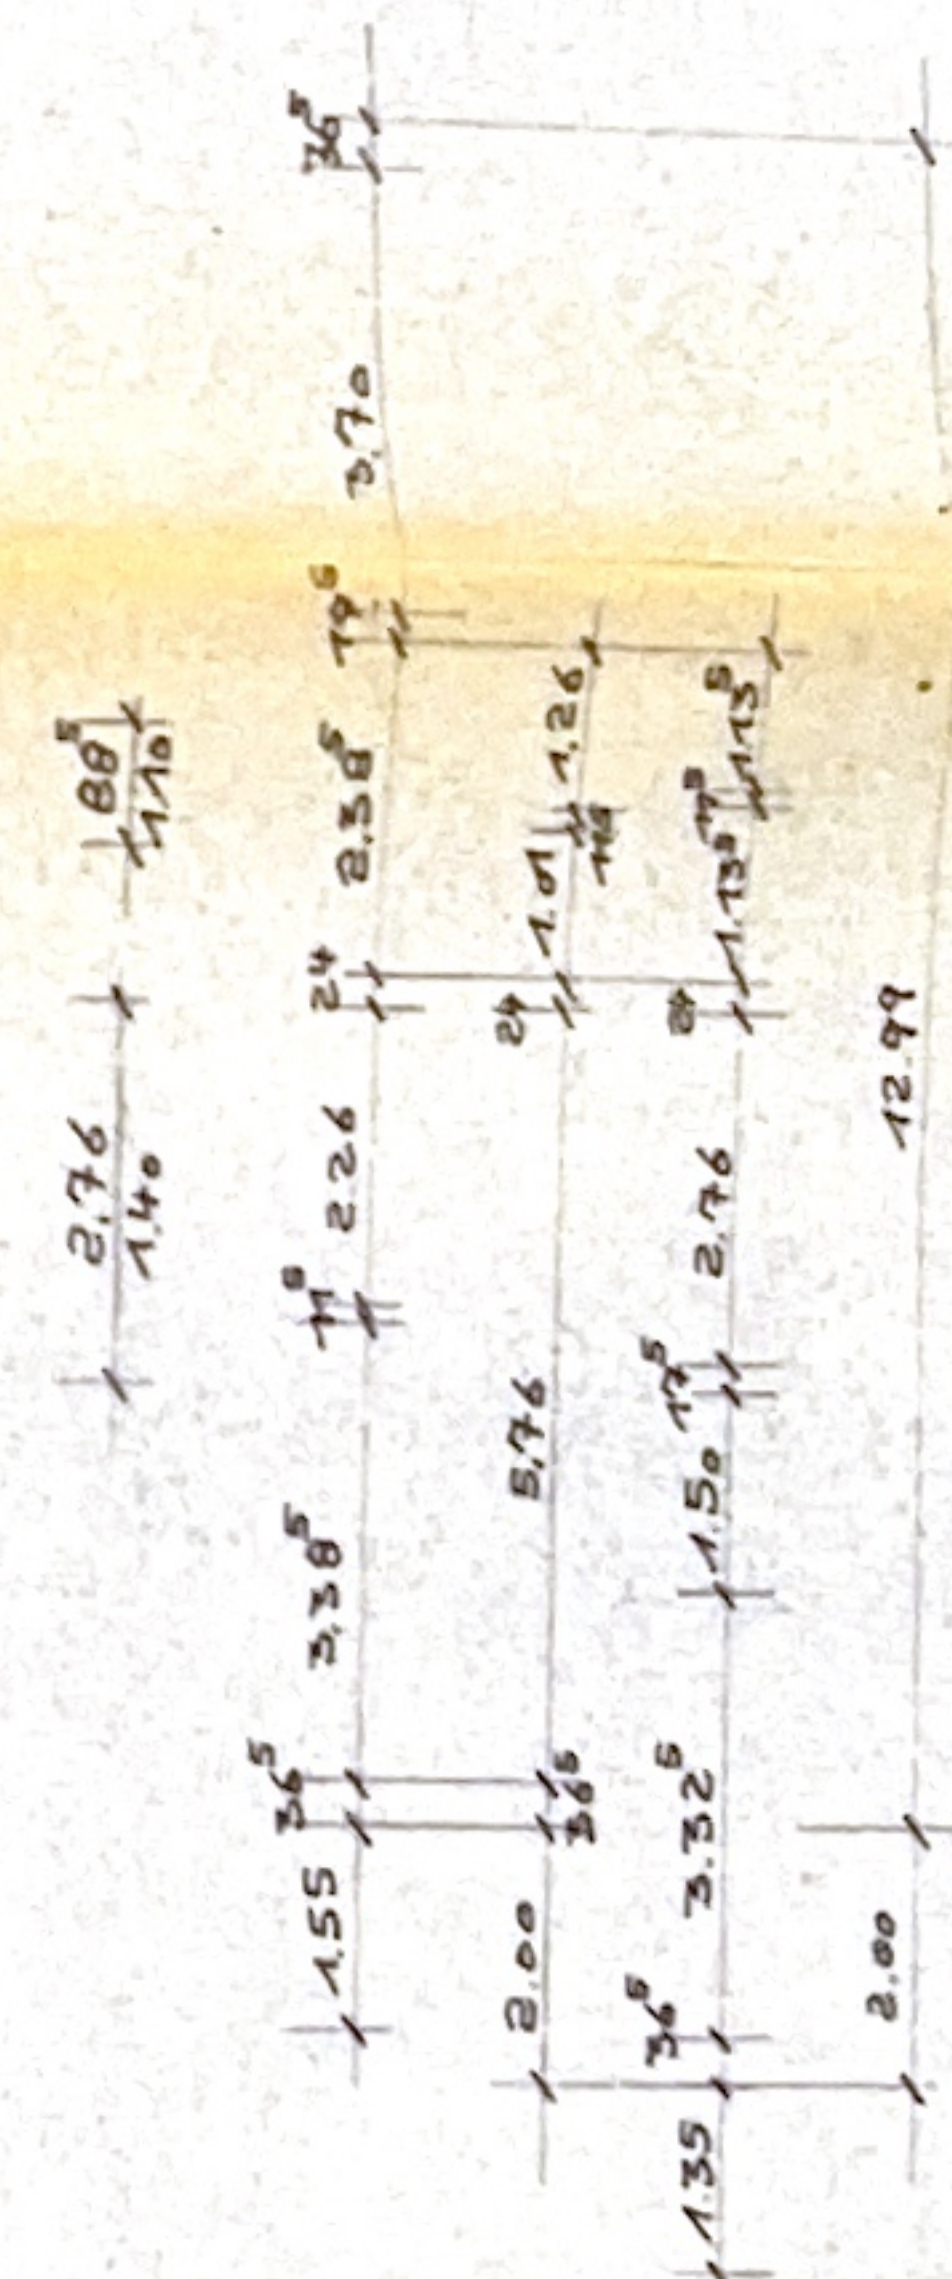 2.76 88⁵
1.40 1.10
1.55 36⁵ 3.38⁵ 11⁵ 2.26 24 2.38⁵ 17⁵ 3.70 36⁵
2.00 36⁵ 5.76 24 1.01 11⁵ 1.26
1.35 36⁵ 3.32⁵ 1.50 17⁵ 2.76 24 1.13⁵ 11⁵ 1.13⁵
2.00 12.99